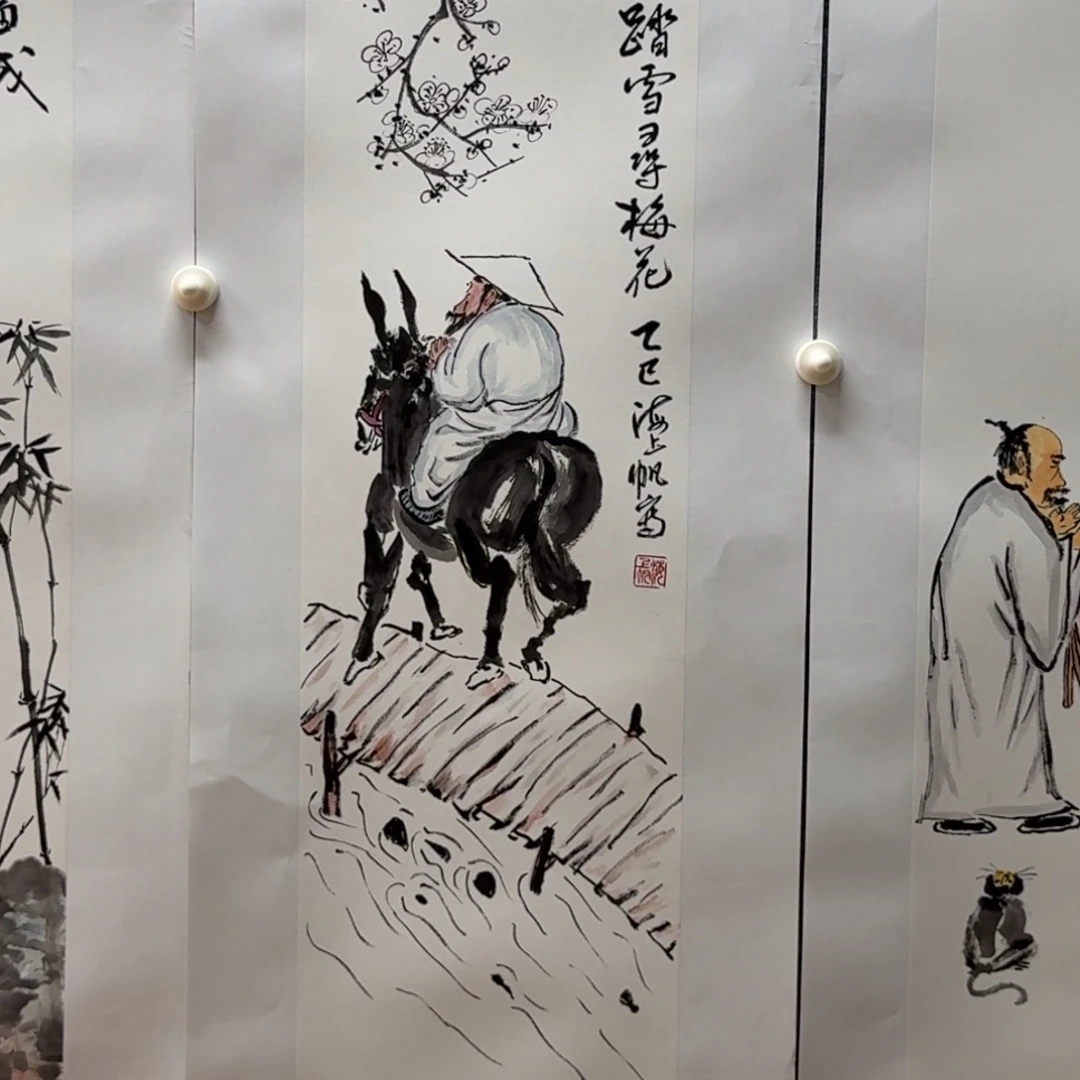 踏雪寻梅花 乙巳海上帆写